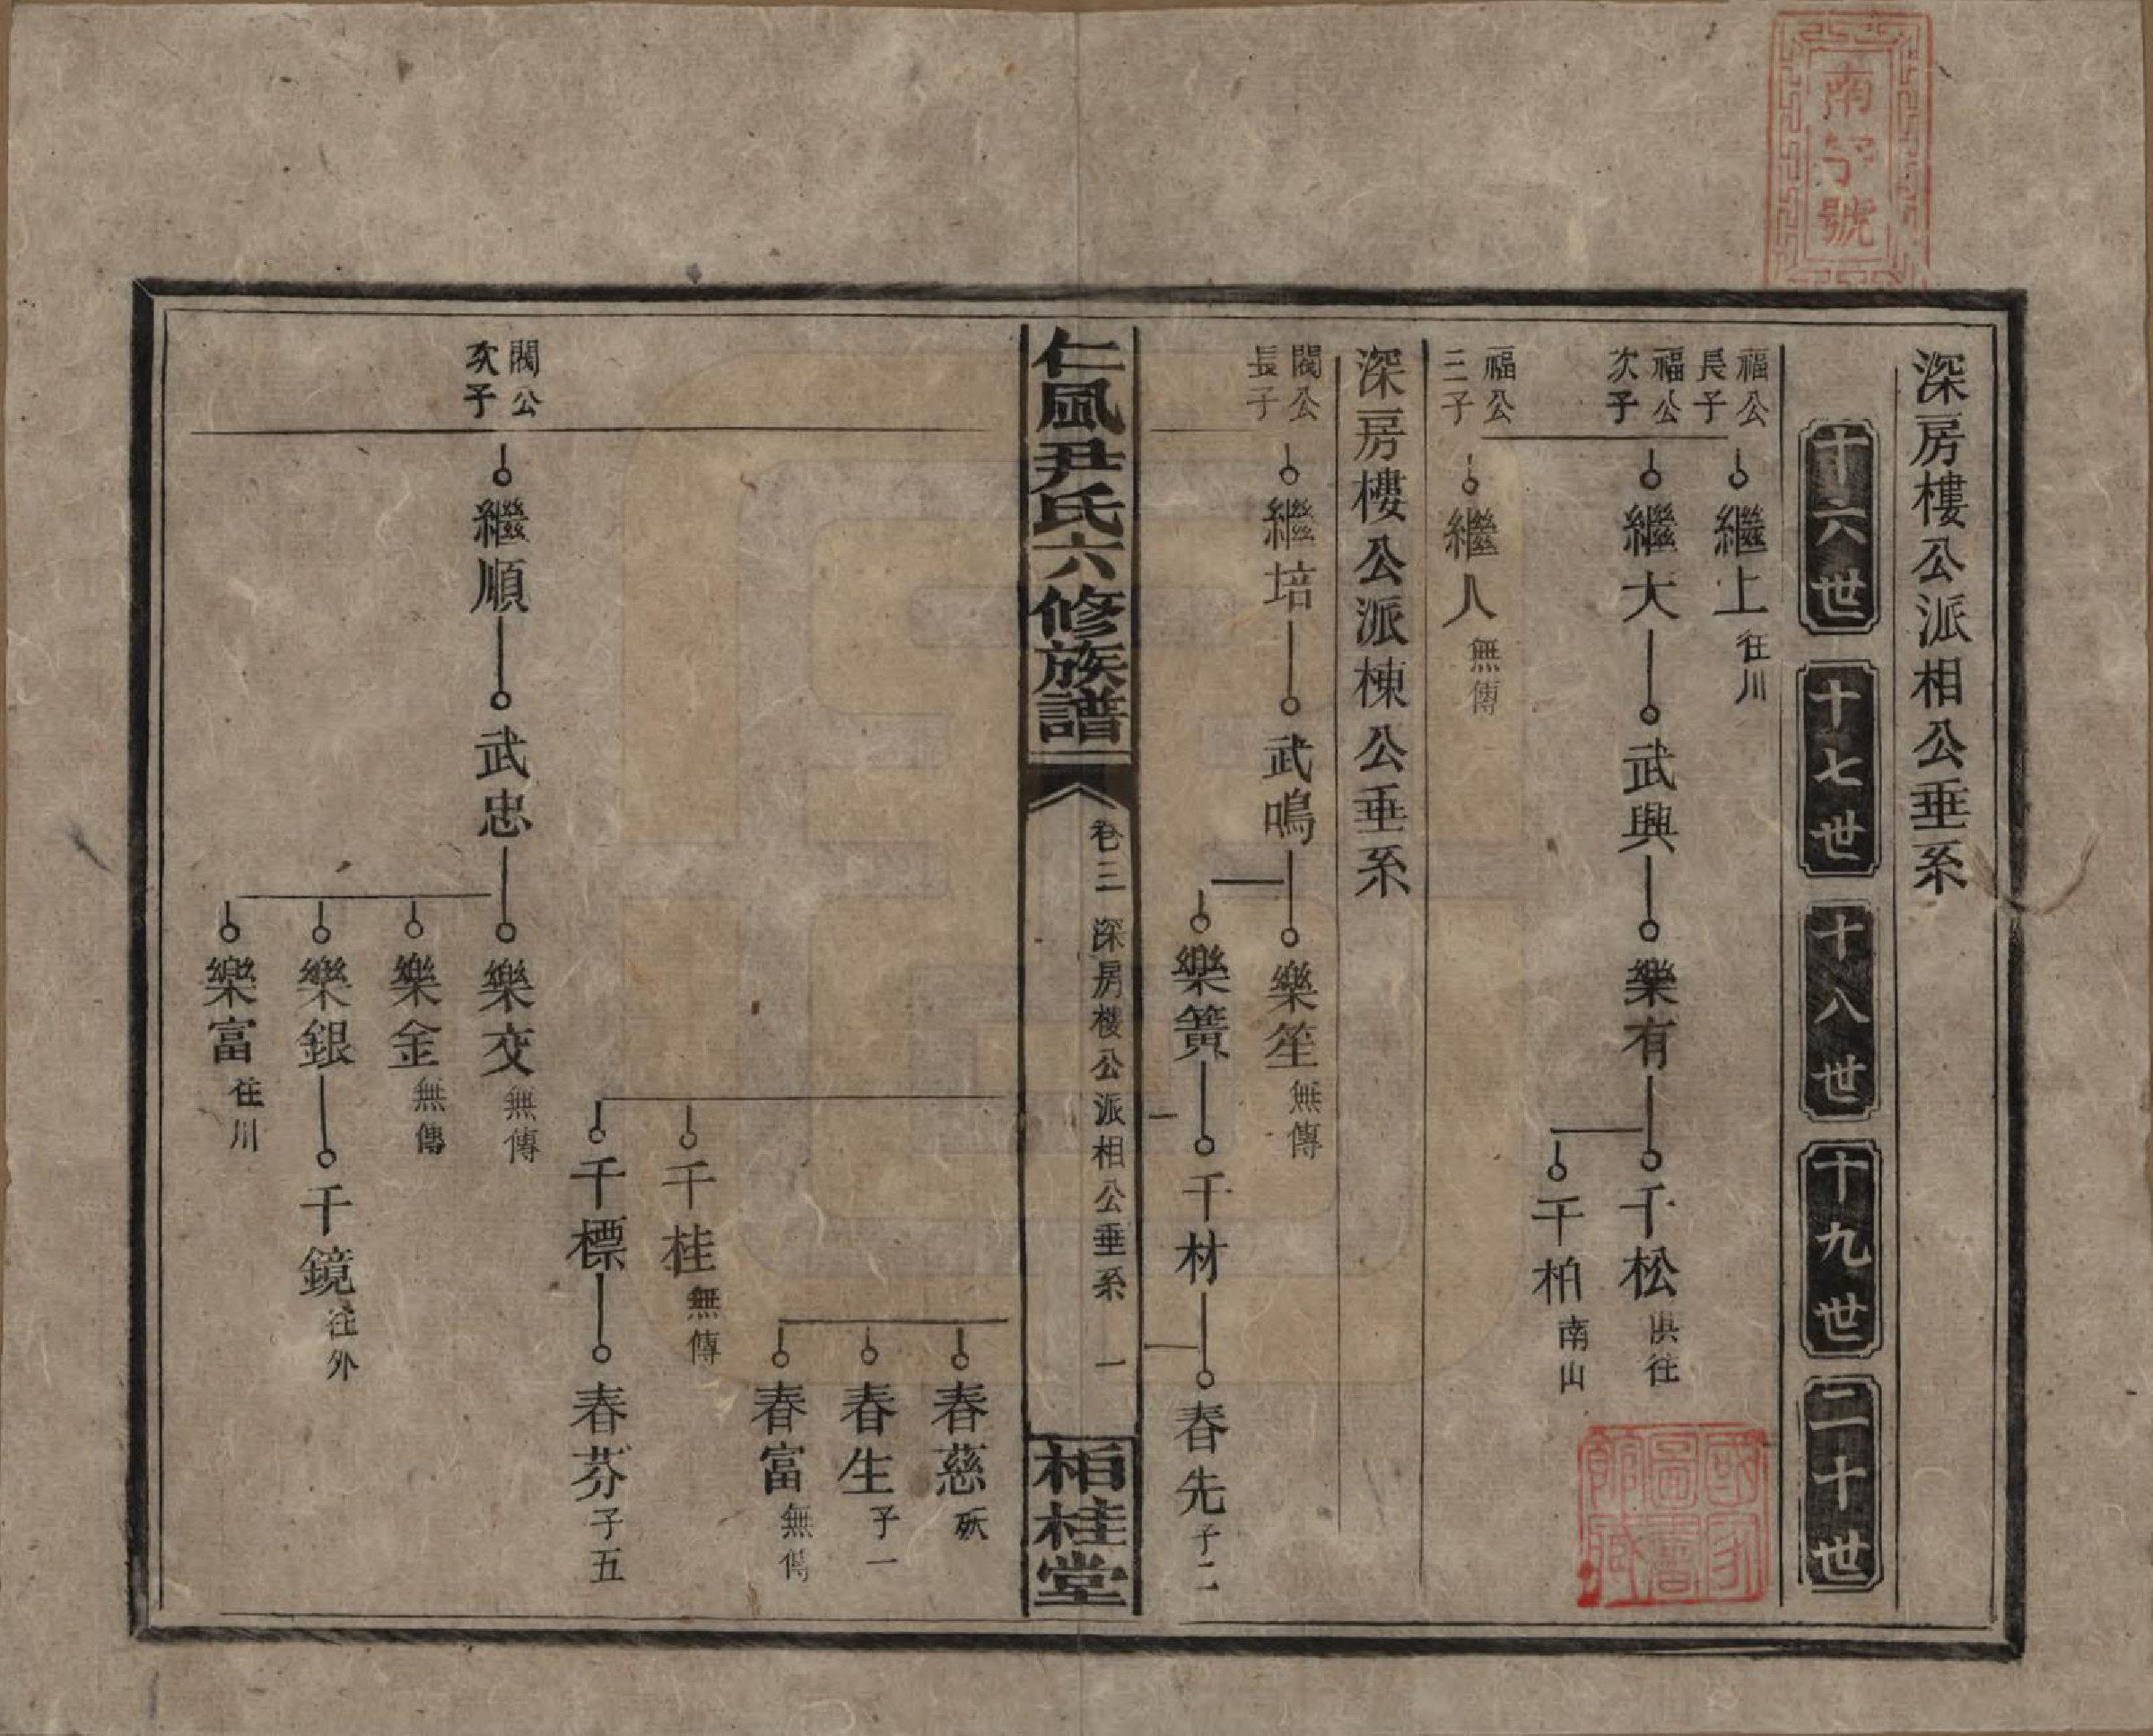 南字號
深房樓公派相公垂系
十六世
十七世
十八世
十九世
二十世
福公長子
繼上 往川
福公次子
繼大
武興
樂有
千松 俱往
千柏 南山
福公三子
繼人 無傳
國家圖書館藏
深房樓公派棟公垂系
閣公長子
繼培
武鳴
樂笙 無傳
樂簧
千材
春先 子二
仁風尹氏六修族譜
卷三 深房樓公派相公垂系 一
柏桂堂
春慈 殀
春生 子一
春富 無傳
千桂 無傳
千標
春芬 子五
閣公次子
繼順
武忠
樂交 無傳
樂金 無傳
樂銀
千鏡 往外
樂富 往川